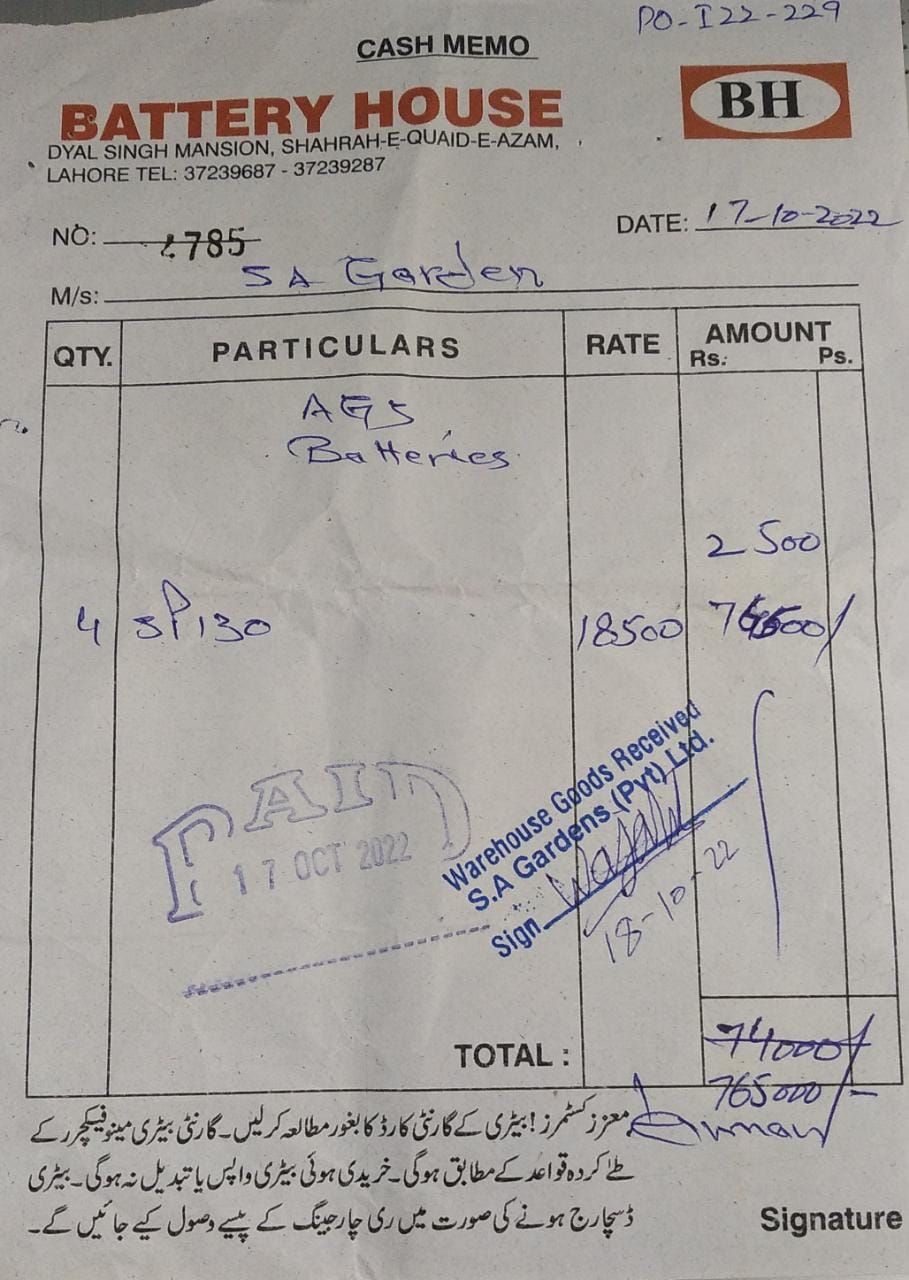 PO-I22-229
CASH MEMO
BATTERY HOUSE
BH
DYAL SINGH MANSION, SHAHRAH-E-QUAID-E-AZAM,
LAHORE TEL: 37239687 - 37239287
NO: 2785
DATE: 17-10-2022
M/s: SA Garden
QTY. PARTICULARS RATE AMOUNT
Rs. Ps.
AGS
Batteries
2500
4 SP130 18500
PAID
17 OCT 2022
Warehouse Goods Received
S.A Gardens (Pvt) Ltd.
Sign
18-10-22
TOTAL : 74000/
765000/-
معزز کسٹمرز! بیٹری کے گارنٹی کارڈ کا بغور مطالعہ کرلیں۔ گارنٹی بیٹری مینوفیکچرر کے
طے کردہ قواعد کے مطابق ہوگی۔ خریدی ہوئی بیٹری واپس یا تبدیل نہ ہوگی۔ بیٹری
ڈسچارج ہونے کی صورت میں ری چارجنگ کے پیسے وصول کیے جائیں گے۔
Signature